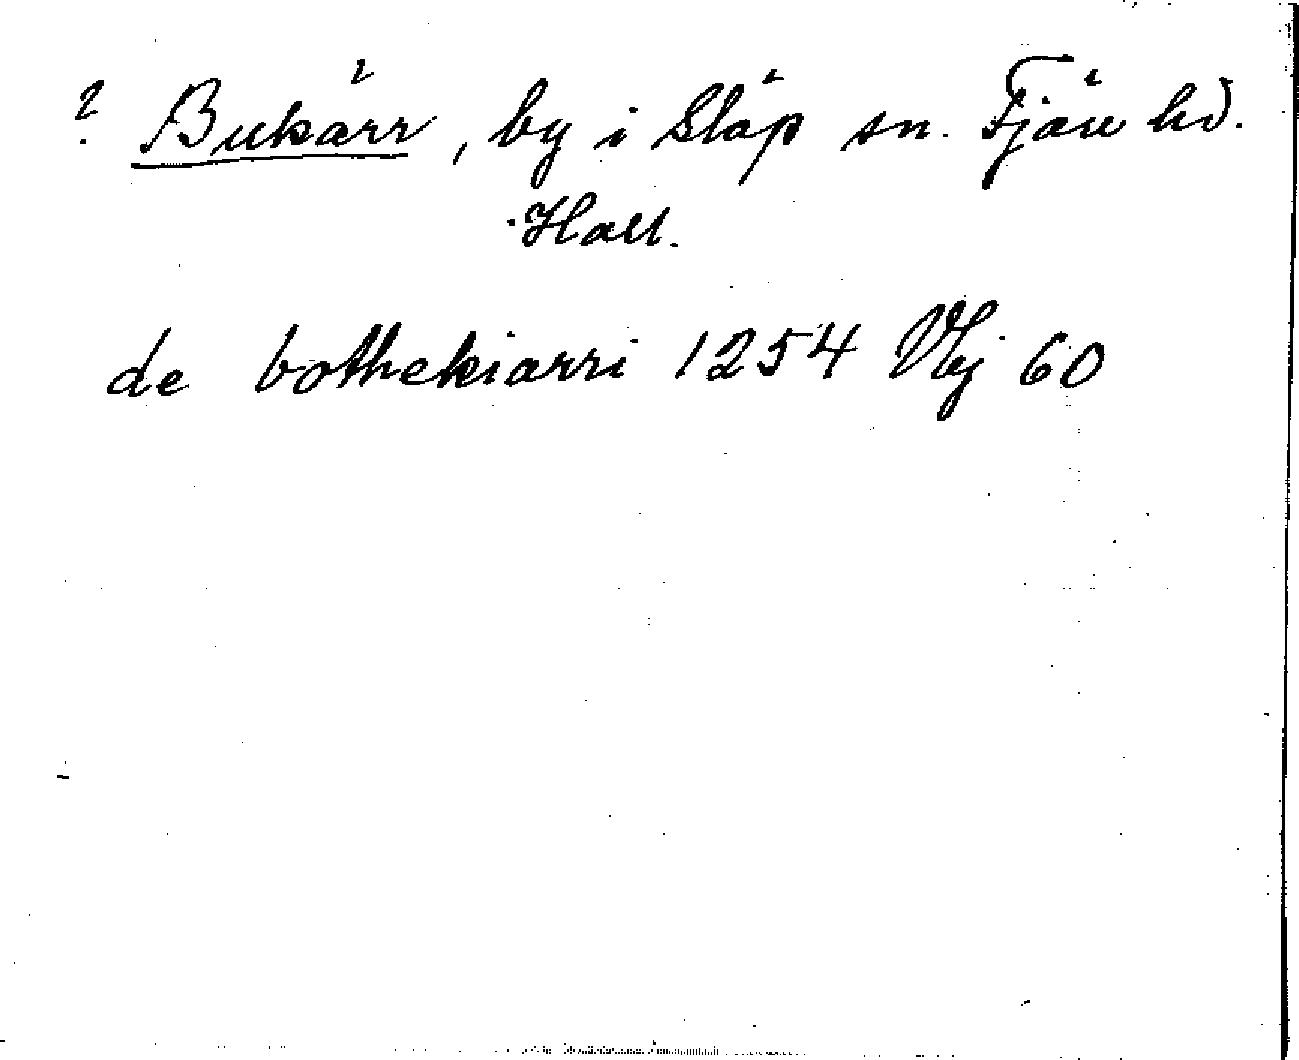 ? Bukärr, by i Släp sn. Fjäre hd.
Hall.
de bothekiarri 1254 Vbj 60